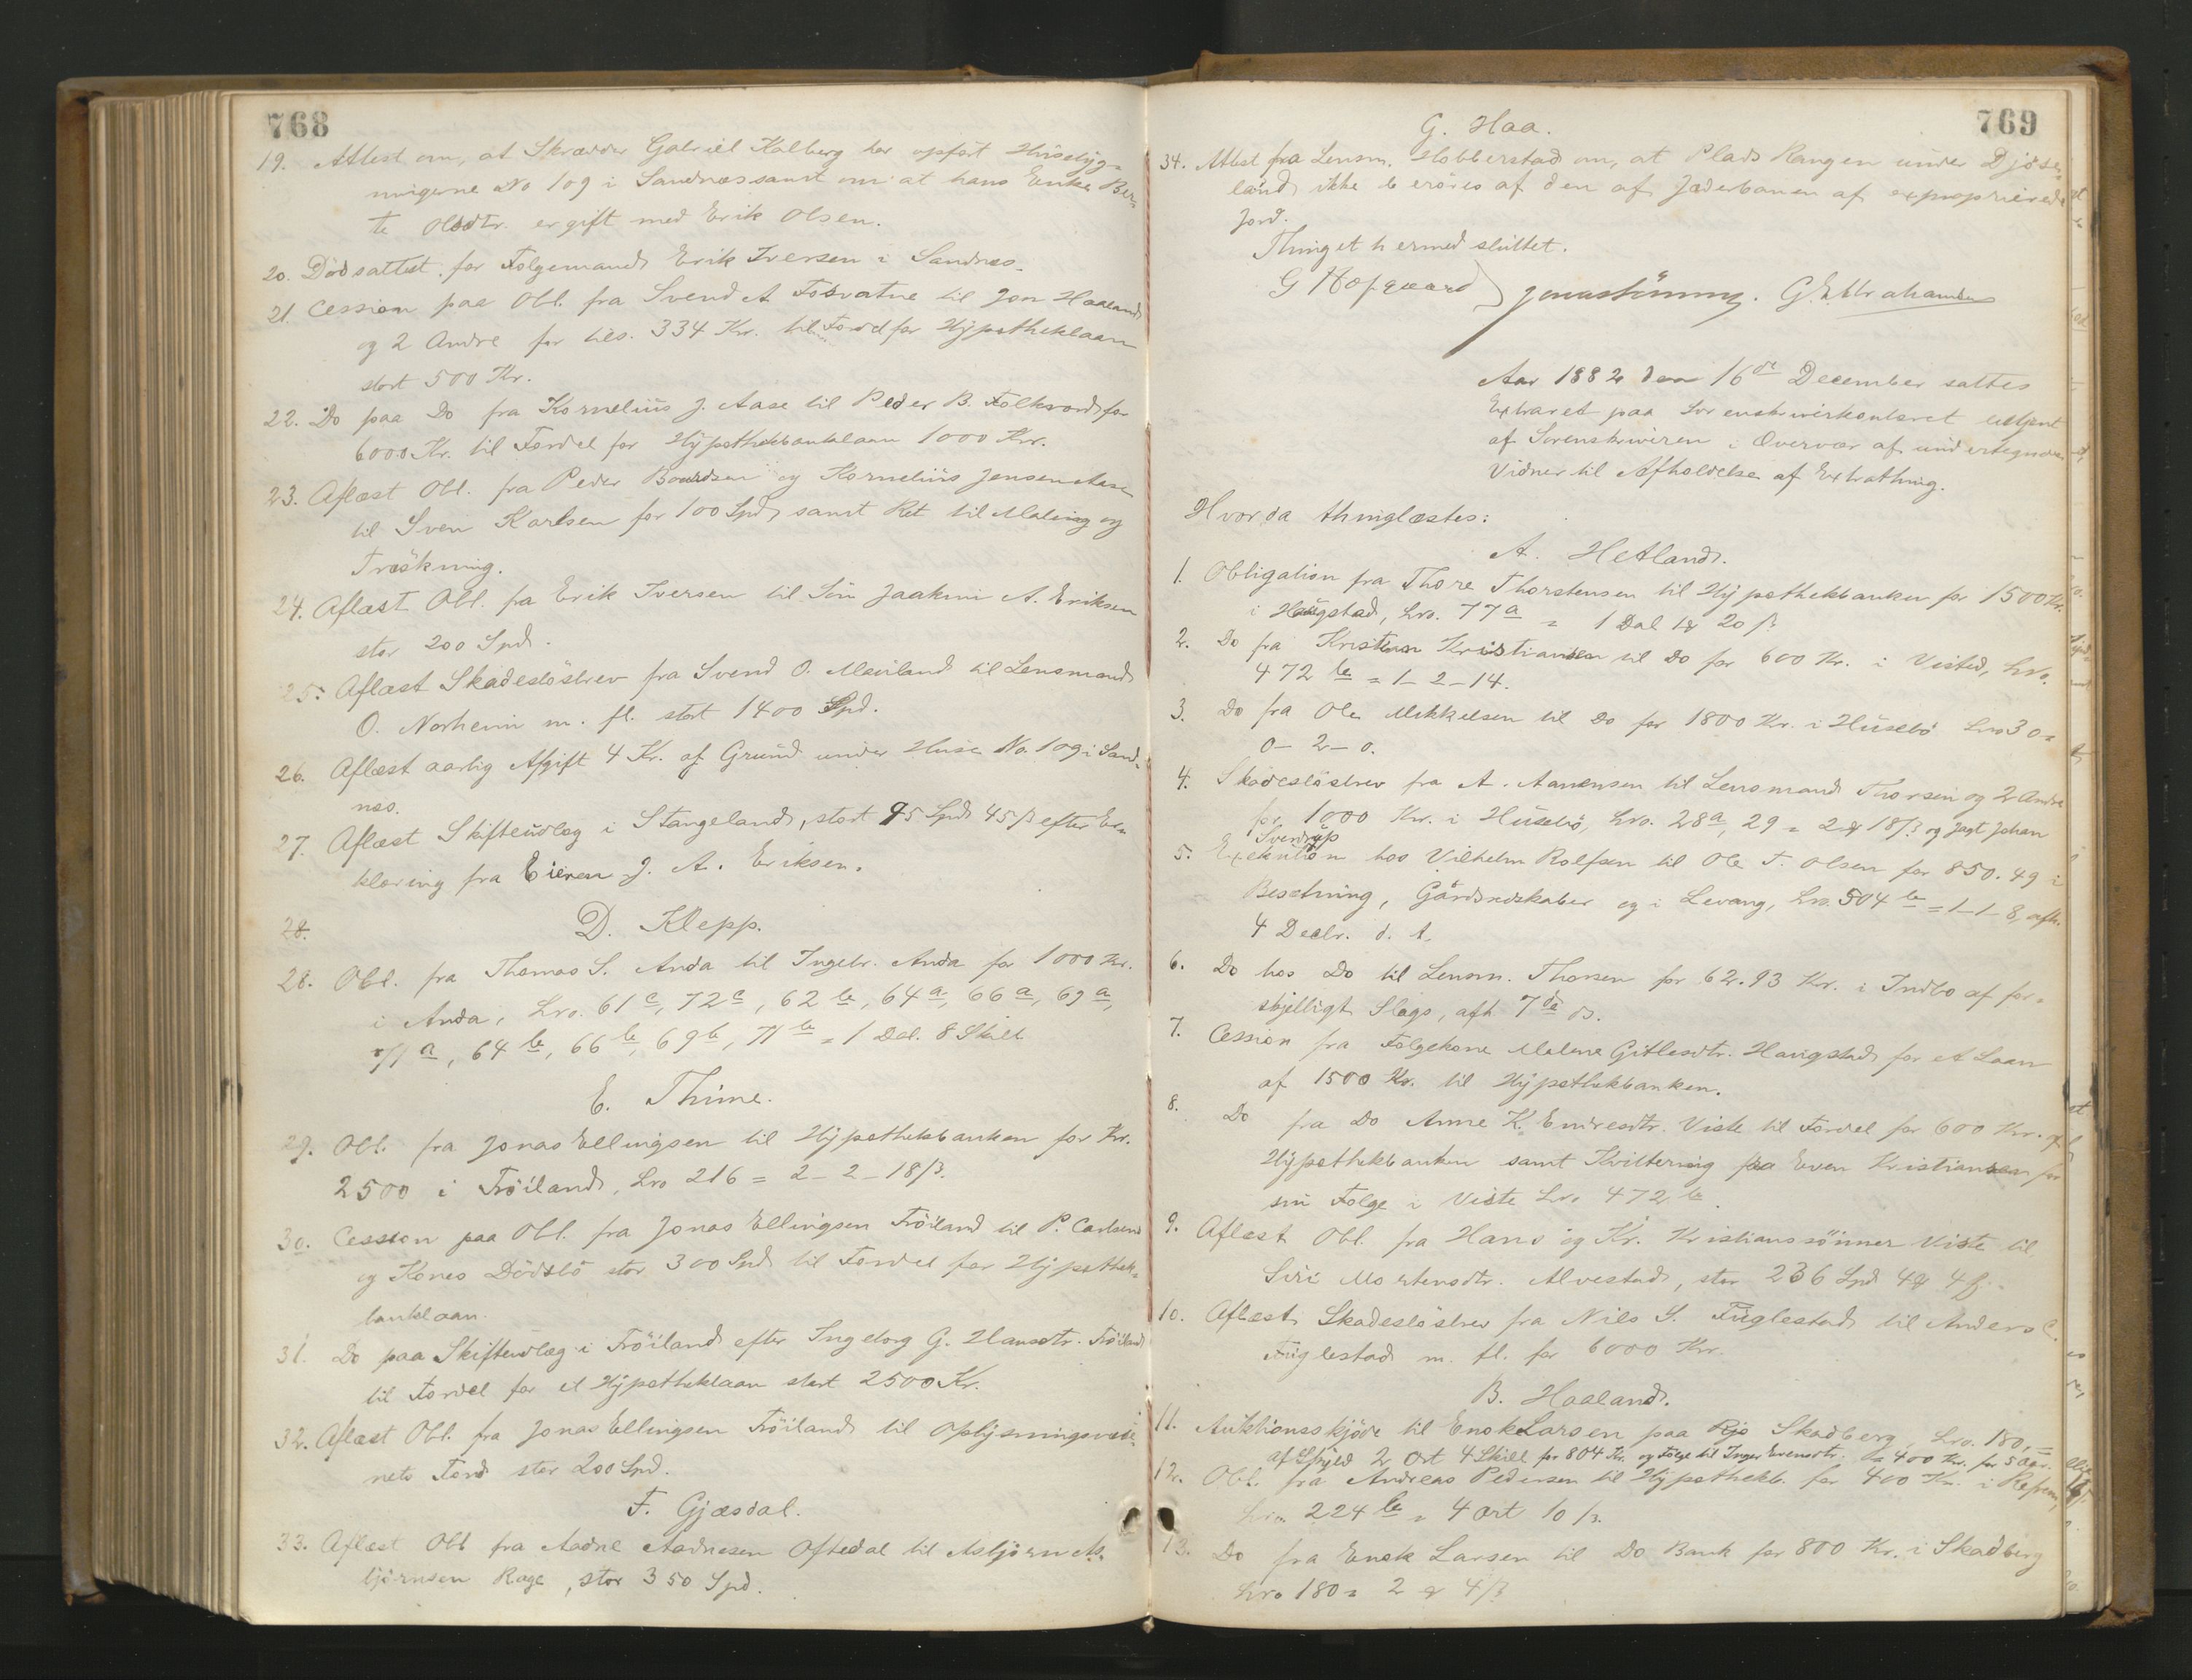 768
19. Attest om, at Skræder Gabriel Kalberg har opført Huusbyg-
ningerne No 109 i Sandnæs samt om at hans Enke Ber-
te Olsdtr. er gift med Erik Olsen.
20. Dödsattest for Folgemand Erik Iversen i Sandnæs.
21. Cession paa Obl. fra Svend A Fosvatne til Jon Haaland
og 2 Andre for tils. 334 Kr. til Fordel for Hypotheklaan
stort 500 Kr.
22. Do paa Do fra Kornelius J. Aase til Peder B. Folkvord for
6000 Kr. til Fordel for Hypothekbanklaan 1000 Kr.
23. Aflæst Obl. fra Peder Baardsen og Kornelius Jensen Aase
til Sven Karlsen for 100 Spd samt Ret til Maling og
Træskning.
24. Aflæst Obl. fra Erik Iversen til Sön Jaakim A. Eriksen
stor 200 Spd.
25. Aflæst Skadeslösbrev fra Svend O. Mauland til Lensmand
O. Norheim m. fl. stort 1400 Spd.
26. Aflæst aarlig Afgift 4 Kr. af Grund under Huse No. 109 i Sand-
næs.
27. Aflæst Skifteudlæg i Stangeland, stort 95 Spd 45 β efter Er-
klæring fra Eieren J. A. Eriksen.
28. D. Klepp.
28. Obl. fra Thomas S. Anda til Ingebr. Anda for 1000 Kr.
i Anda, Lvo. 61 c, 72 c, 62 b, 64 a, 66 a, 69 a,
71 a, 64 b, 66 b, 69 b, 71 b = 1 Dal. 8 Skill
E. Thime.
29. Obl. fra Jonas Ellingsen til Hypothekbanken for Kr.
2500 i Fröiland, Lvo 216 = 2 - 2 - 18 β.
30. Cession paa Obl. fra Jonas Ellingsen Fröiland til P. Carlsens
og Kones Dödsbo stor 300 Spd til Fordel for Hypothek-
banklaan.
31. Do paa Skifteudlæg i Fröiland efter Ingeborg G. Hansdtr. Fröiland
til Fordel for et Hypotheklaan stort 2500 Kr.
32. Aflæst Obl. fra Jonas Ellingsen Fröiland til Oplysningsvæse-
nets Fond stor 200 Spd.
F. Gjæsdal.
33. Aflæst Obl fra Aadne Aadnesen Oftedal til Asbjörn As-
björnsen Rage, stor 350 Spd.
769
G. Haa.
34. Attest fra Lensm. Hobberstad om, at Plads Rangen under Djöse-
land ikke beröres af den af Jæderbanen af exproprierede
Jord.
Thinget hermed sluttet.
G Hofgaard G. Abrahamsen
Aar 1882 den 16de December sattes
Extraret paa Sorenskriverkontoret betjent
af Sorenskriveren i Overvær af undertegnede
Vidner til Afholdelse af Extrathing.
Hvor da thinglæstes:
A. Hetland.
1. Obligation fra Thore Thorstensen til Hypothekbanken for 1500 Kr.
i Haugstad, Lvo. 77 a = 1 Dal 1 ort 20 β
2. Do fra Kristian Kristiansen til Do for 600 Kr. i Visted, Lvo.
472 b = 1 - 2 - 14.
3. Do fra Ole Mikkelsen til Do for 1800 Kr. i Husebö Lvo 30 =
0 - 2 - 0.
4. Skadeslösbrev fra A. Aanensen til Lensmand Thorsen og 2 Andre
for 1000 Kr. i Husebö, Lvo. 28 a, 29 = 2 ort 18 β og Jagt Johan
Sverdrup
5. Exekution hos Vilhelm Rolfsen til Ole T. Olsen for 850.49 i
Besetning, Gårdsredskaber og i Levang, Lvo. 504 b = 1 - 1 - 8, afh.
4 Decbr. d. A.
6. Do hos Do til Lensm. Thorsen for 62.93 Kr. i Indbo af for-
skjelligt Slags, afh 7de ds.
7. Cession fra Folgekone Malene Gitlesdtr. Haugstad for et Laan
af 1500 Kr. til Hypothekbanken.
8. Do fra Do Anne K. Endresdtr. Viste til Fordel for 600 Kr. af
Hypothekbanken samt Kvittering fra Even Kristiansen for
sin Folge i Viste Lvo 472 b.
9. Aflæst Obl. fra Hans og Kr. Kristianssönner Viste til
Siri Mortensdtr. Alvestad, stor 236 Spd 4 ort 4 β.
10. Aflæst Skadeslösbrev fra Nils S. Fuglestad til Anders C.
Fuglestad m. fl. for 6000 Kr.
B. Haaland.
11. Auktionsskjöde til Enok Larsen paa Rjo Skadberg, Lvo. 180, =
af Skyld 2 Ort 4 Skill for 804 Kr. og Folge til Inger Evensdtr. à 400 Kr. for 5 Aar.
12. Obl. fra Andreas Pedersen til Hypothekb. for 400 Kr. i Refsnes,
Lvo 224 b = 4 ort 10 β.
13. Do fra Enok Larsen til Do Bank for 800 Kr. i Skadberg
Lvo 180 = 2 ort 4 β